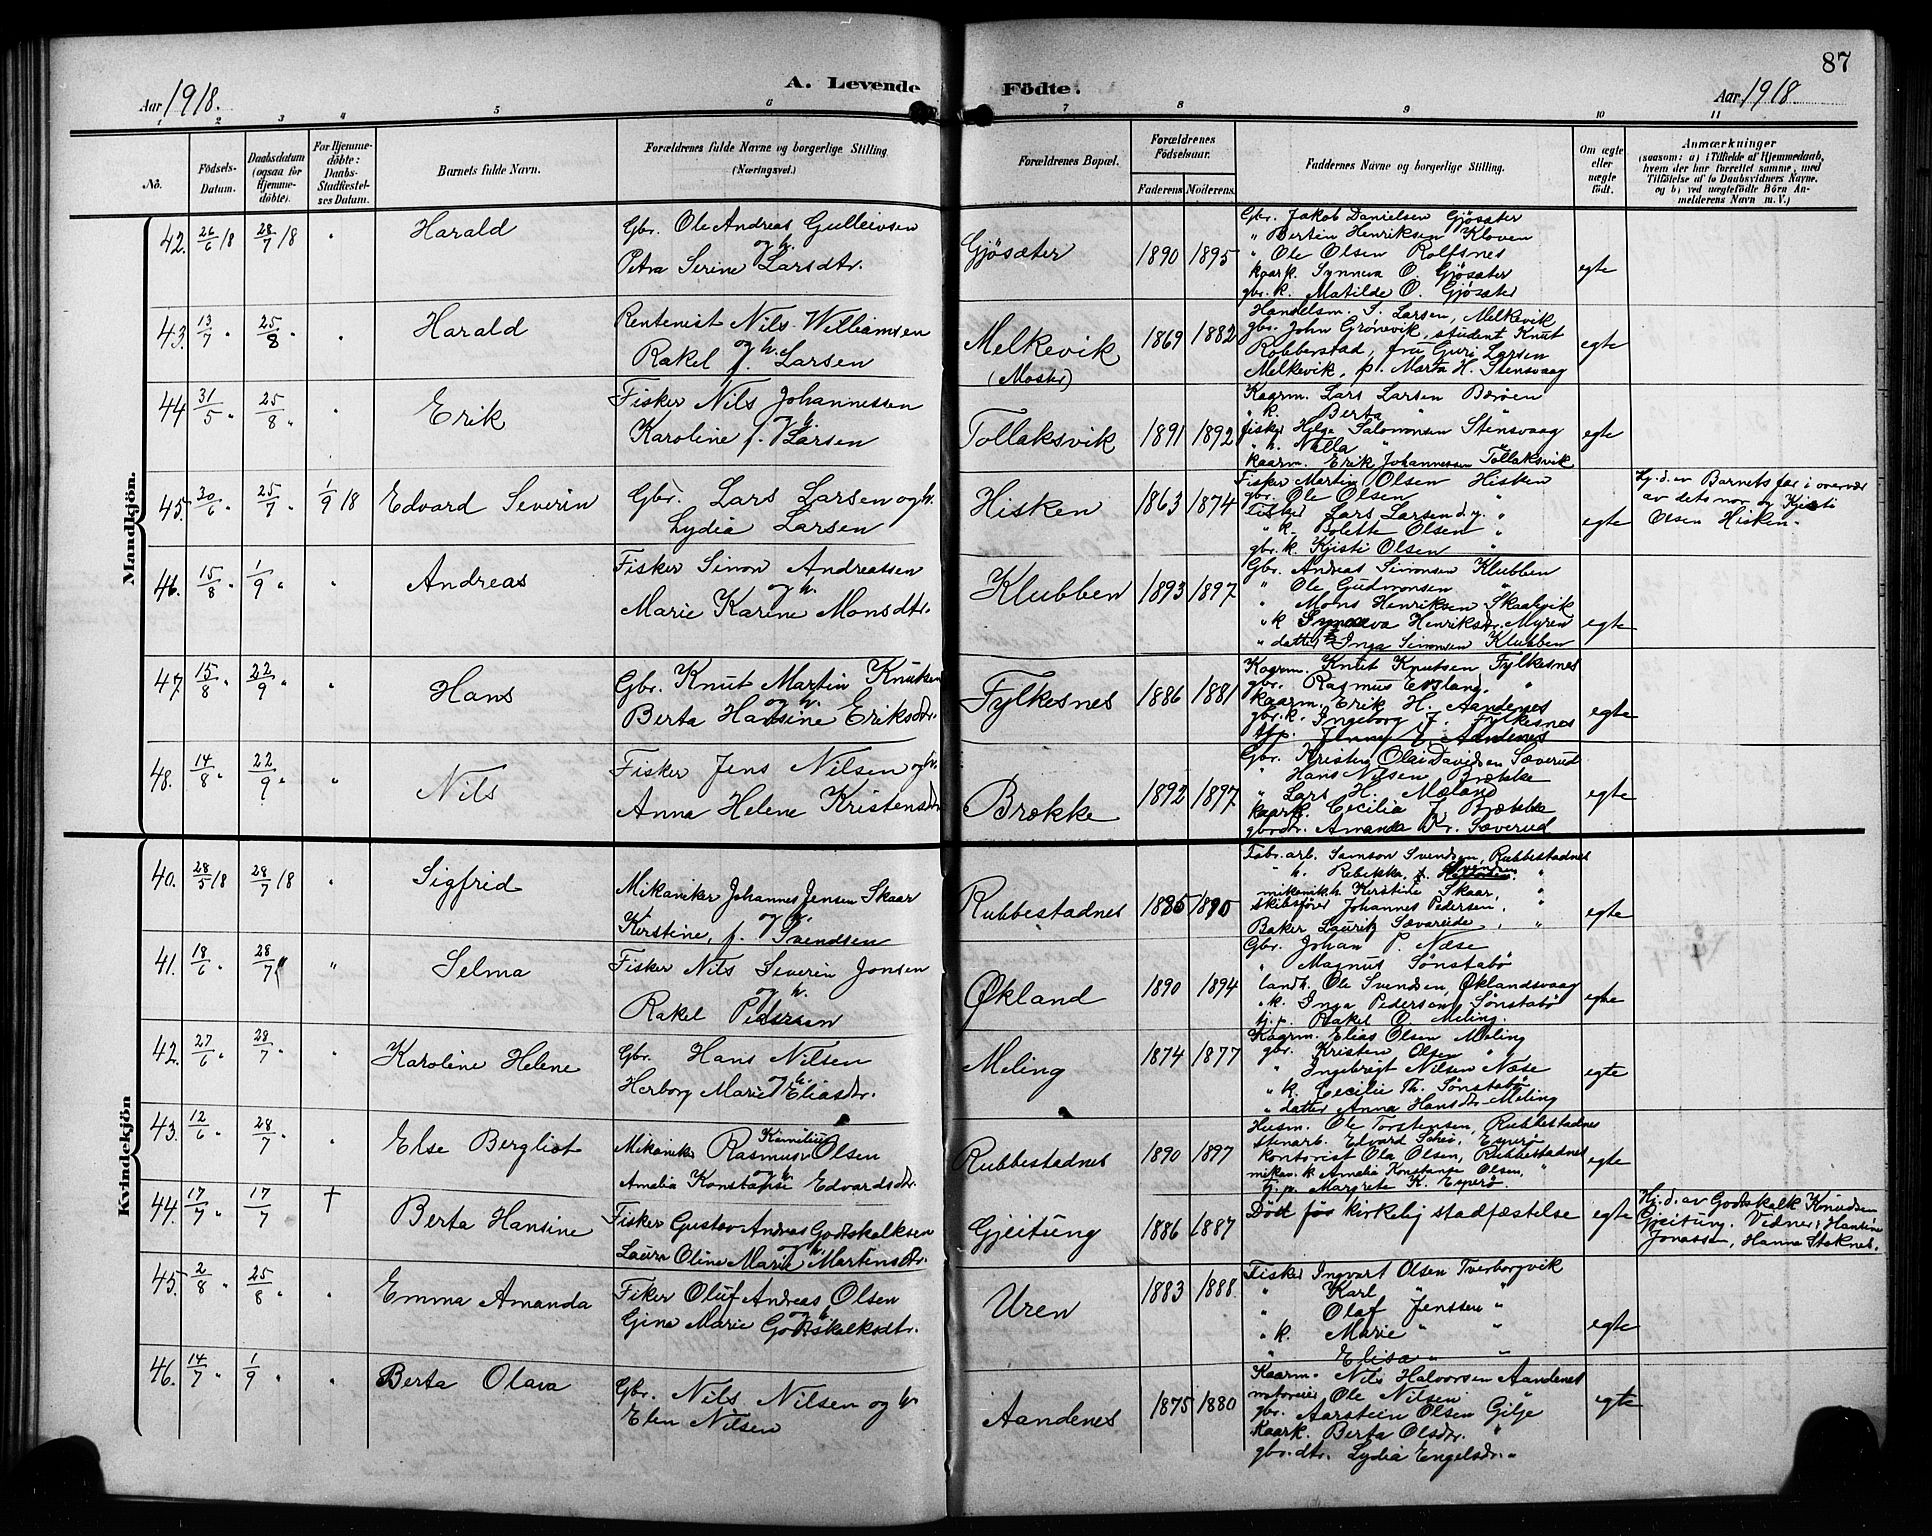 87
Aar 1918.
A. Levende Födte.
Aar 1918
1 2 3 4 5 6 7 8 9 10 11
No.
Födsels-Datum.
Daabsdatum (ogsaa for Hjemme-döbte).
For Hjemme-döbte: Daabs-Stadfæstel-ses Datum.
Barnets fulde Navn.
Forældrenes fulde Navne og borgerlige Stilling (Næringsvei.)
Forældrenes Bopæl.
Forældrenes Födselsaar.
Faderens. Moderens.
Faddernes Navne og borgerlige Stilling.
Om ægte eller uægte födt.
Anmærkninger
(saasom: a) i Tilfælde af Hjemmedaab,
hvem der har forrettet samme, med
Tilföielse af to Daabsvidners Navne.
og b) ved uægtefödte Börn An-
melderens Navn m. V.)
Mandkjön.
42. 26/6 18 28/7 18 " Harald
Gbr. Ole Andreas Gulleivsen
og h.
Petra Serine Larsdtr.
Gjøsæter 1890 1895
Gbr. Jakob Danielsen Gjøsæter
" Bertin Henriksen Kloven
" Ole Olsen Rolfsnes
kaark. Synneva O. Gjøsæter
gbr. k. Matilde O. Gjøsæter
egte
43. 13/7 " 25/8 " " Harald
Rentenist Nils Williamsen
og h.
Rakel f. Larsen
Melkevik (Moster) 1869 1882
Handelsm. S. Larsen, Melkevik
gbr. John Grønevik, student Knut
Robberstad, fru Guri Larsen
Melkevik, p. Marta H. Stensvaag
egte
44 31/5 " 25/8 " " Erik
Fisker Nils Johannessen
og h.
Karoline f. Larsen
Tollaksvik 1891 1892
Kaarm. Lars Larsen Børøen
" k. Berta " "
fisker Helge Salomonsen Stensvaag
" h. Nilla "
kaarm. Erik Johannessen Tollaksvik
egte
45. 30/6 " 25/7 " 1/9 18 Edvard Severin
Gbr. Lars Larsen og h.
Lydia Larsen
Hisken 1863 1874
Fisker Martin Olsen Hisken
gbr. Ole Olsen "
Fisker Lars Larsen d.y. "
" k. Bolette Olsen "
gbr. k. Kjisti Olsen "
egte
Hj.d. av Barnets far i overvær
av dets mor og Kjisti
Olsen Hisken.
46. 15/8 " 1/9 " " Andreas
Fisker Simon Andreassen
og h.
Marie Karine Monsdtr.
Klubben 1893 1897
Gbr. Andreas Simonsen Klubben
" Ole Gudmonsen "
" Mons Henriksen Skaalvik
" k Synneva Henriksdr. Myren
" datter Inga Simonsen Klubben
egte
47. 15/8 " 22/9 " " Hans
Gbr. Knut Martin Knutsen
og h.
Berta Hansine Eriksdtr.
Fylkesnes 1886 1881
Kaarm. Knut Knutsen Fylkesnes
gbr. Rasmus Øvsland. "
kaarm. Erik H. Aandenes
gbr. k. Ingeborg J. Fylkesnes
tjp. Jenny E. Aandenes
egte
48. 14/8 " 22/9 " " Nils
Fisker Jens Nilsen og h.
Anna Helene Kristensdtr
Brække 1892 1897
Gbr. Kristen Olai Davidsen Sæverud
" Hans Nilsen Brække
" Lars H. Mæland
kaark. Cecilia J. Brække
gbrdtr. Amanda Kr. Sæverud
egte
Kvindekjön
40. 28/5 18 28/7 18 " Sigfrid
Mikaniker Johannes Jensen Skaar
og h.
Kirstine, f. Svendsen
Rubbestadnes 1885 1890
Fabr.arb. Samson Svendsen, Rubbestadnes
" h. Rebekka, Svendsen "
mikanik.h. Kirstine Skaar, "
skibsfører Johannes Pedersen, "
Baker Lauritz Sævareide, "
egte
41. 18/6 " 28/7 " " Selma
Fisker Nils Severin Jonsen
og h.
Rakel Pedersen
Økland 1890 1894
Gbr. Johan P. Næse
" Magnus Sønstabø
landh. Ole Svendsen, Øklandsvaag
" k. Inga Pedersen, Sønstabø
tj.p. Rakel O. Meling.
egte
42. 27/6 " 28/7 " " Karoline Helene
Gbr. Hans Nilsen
og h.
Herborg Marie Eliasdr.
Meling 1874 1877
Kaarm. Elias Olsen Meling
gbr. Kristen Olsen "
" Ingebrigt Nilsen Næse
" k. Cecilie Th. Sønstabø
" datter Anna Hansdtr Meling
egte
43. 12/6 " 28/7 " " Else Bergliot
Mikanike Rasmus Kornelius Olsen
og h
Amalia Konstanse Edvardsdtr.
Rubbestadnes 1890 1897
Husm. Ole Torstensen, Rubbestadnes
stenarb. Edvard Schei, Esperø
kontorist Ola Olsen, Rubbestadnes
mikan. k Amalia Konstanse Olsen, "
tj.p. Margrete K. Esperø
egte
44. 17/7 " 17/7 † Berta Hansine
Fisker Gustav Andreas Godtskalksen
og h.
Laura Oline Marie Martinsdtr.
Gjeitung 1886 1887
Død før kirkelig stadfæstelse
egte
Hj.d. av Godtskalk Knudsen
Gjeitung. Vidner: Hansine
Jonassen, Hanna Stoknes.
45. 2/8 " 25/8 " " Emma Amanda
Fiker Oluf Andreas Olsen
og h
Gine Marie Godtskalksdtr.
Uren 1883 1888.
Fisker Ingvart Olsen Tverborgvik
" Karl " "
" Olaf Jenssen "
" k. Marie " "
" Elisa " "
egte
46. 14/7 " 1/9 " " Berta Olava
Gbr. Nils Nilsen og h.
Elen Nilsen
Aandenes 1875 1880
Kaarm. Nils Halvorsen Aandenes
motoreier Ole Nilsen "
gbr. Aarstein Olsen Gilje
Kaark. Berta Olsdtr. "
gbr.dtr. Lydia Engelsdr. "
egte